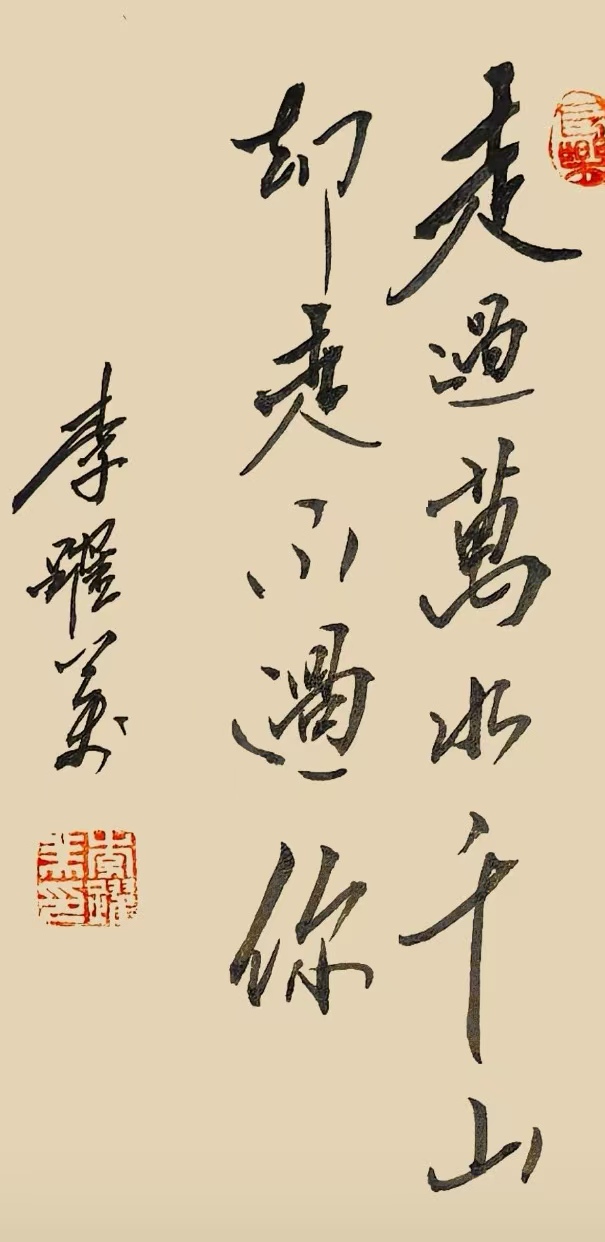 走過萬水千山
却走不過你
李躍